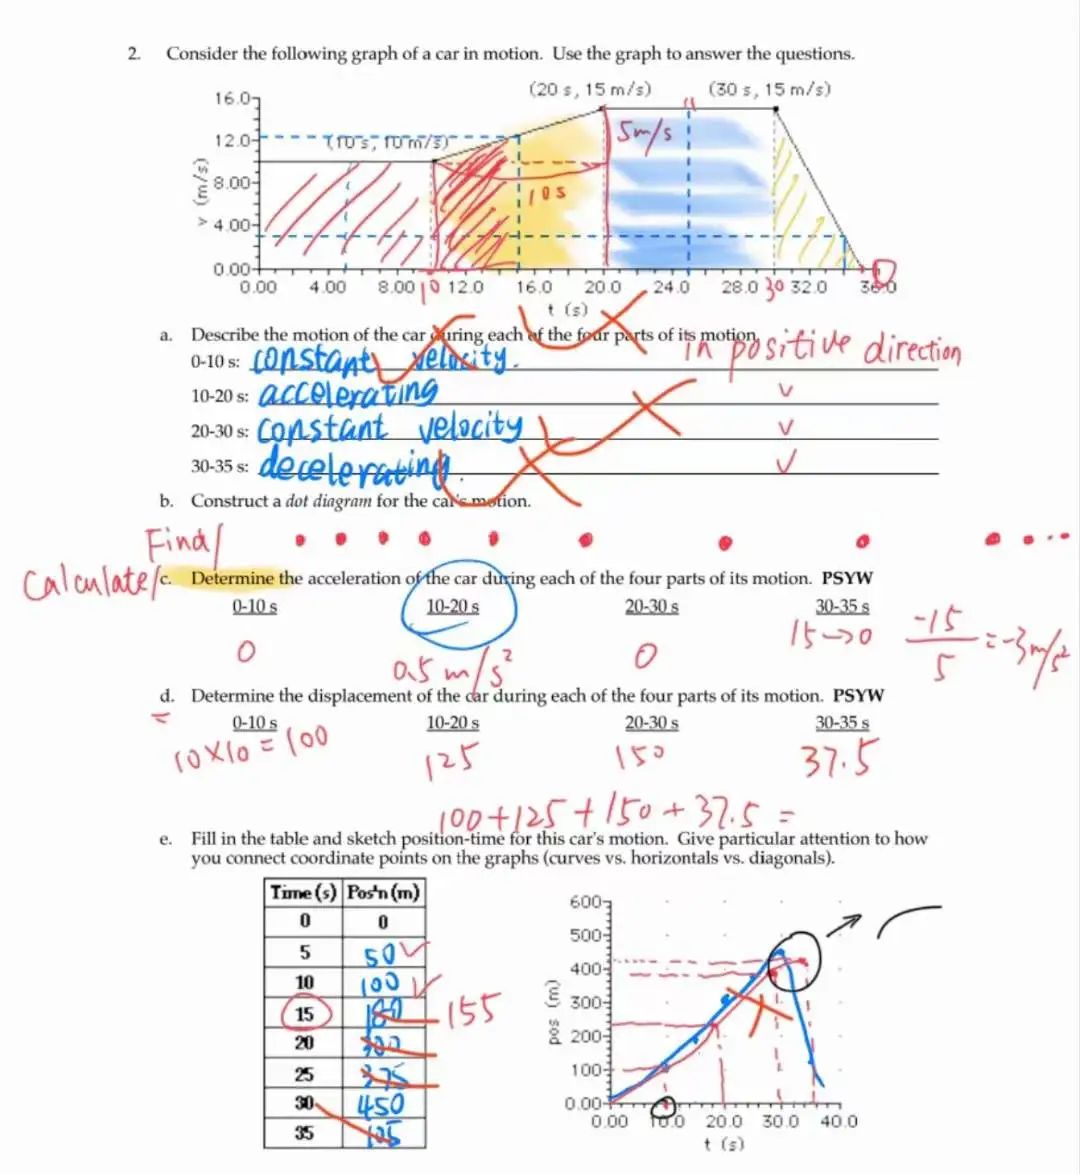 2. Consider the following graph of a car in motion. Use the graph to answer the questions.
(20 s, 15 m/s) (30 s, 15 m/s)
16.0
5m/s
12.0 (10 s, 10 m/s)
v (m/s)
8.00
10s
4.00
0.00
0
0.00 4.00 8.00 10 12.0 16.0 20.0 24.0 28.0 30 32.0 36.0
t (s)
a. Describe the motion of the car during each of the four parts of its motion.
in positive direction
0-10 s: constant velocity.
10-20 s: accelerating
20-30 s: constant velocity
30-35 s: decelerating.
b. Construct a dot diagram for the car's motion.
Find/
Calculate/
c. Determine the acceleration of the car during each of the four parts of its motion. PSYW
0-10 s 10-20 s 20-30 s 30-35 s
0 0.5 m/s² 0 15→0 -15/5 = -3m/s²
d. Determine the displacement of the car during each of the four parts of its motion. PSYW
0-10 s 10-20 s 20-30 s 30-35 s
10×10=100 125 150 37.5
100+125+150+37.5 =
e. Fill in the table and sketch position-time for this car's motion. Give particular attention to how
you connect coordinate points on the graphs (curves vs. horizontals vs. diagonals).
Time (s) Pos'n (m)
0 0
5 50
10 100
15 155
20 300
25 375
30 450
35 105
600
500
400
300
200
100
0.00
pos (m)
0.00 10.0 20.0 30.0 40.0
t (s)